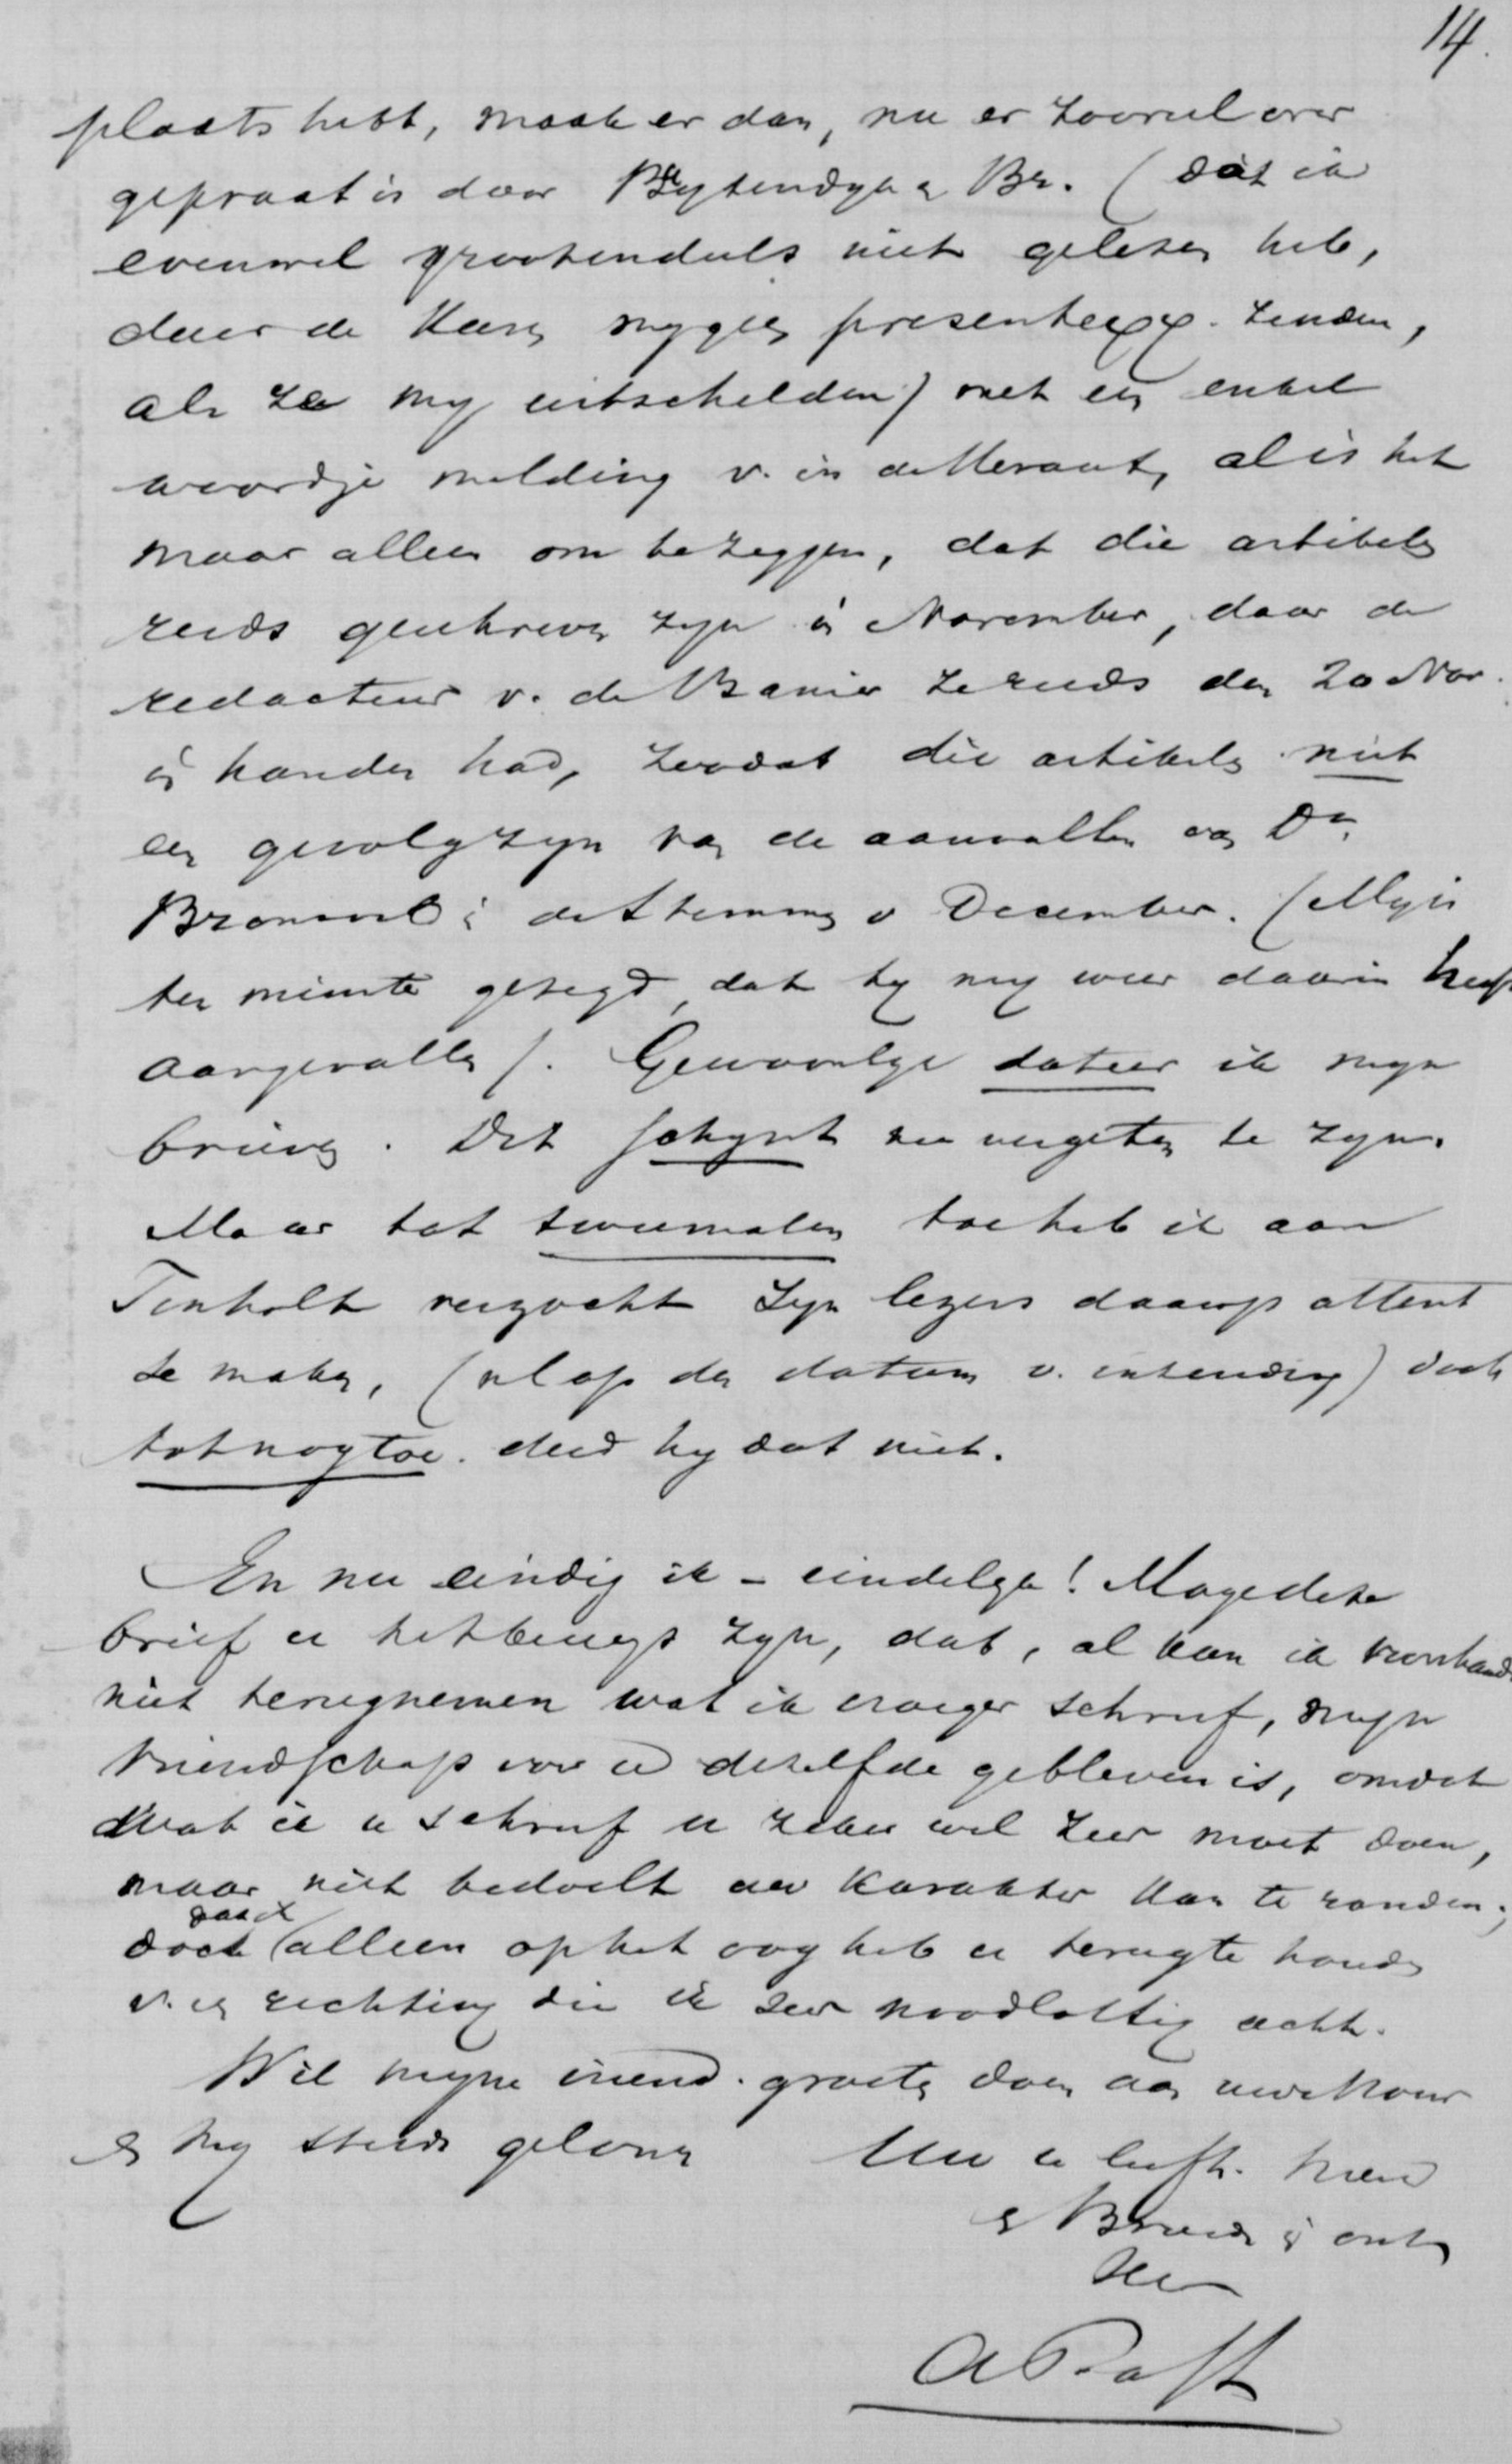 14.
plaats hebt, maak er dan, nu er zooveel over
gepraat is door Buytendyk & Br. (dat ik
evenwel grootendeels niet gelezen heb,
daar de Heeren my geen present exx. zenden,
als ze my uitschelden) met een enkel
woordje melding v. in de Heraut, al is het
maar alleen om te zeggen, dat die artikels
reeds geschreven zyn in November, daar de
redacteur v. de Banier ze reeds den 20 Nov.
in handen had, zoodat die artikels niet
een gevolg zyn van de aanvallen van Dr.
Bronsveld in de Stemmen v December. (My is
ten minste gezegd, dat hy my weer daarin heeft
aangevallen). Gewoonlyk dateer ik myn
brieven. Dit schynt nu vergeten te zyn.
Maar tot tweemalen toe heb ik aan
Tinholt verzocht zyn lezers daarop attent
te maken, (nl op den datum v. inzending) doch
tot nog toe deed hy dat niet.
En nu eindig ik - eindelyk! Moge deze
brief u het bewys zyn, dat, al kan ik voorhands
niet terugnemen wat ik vroeger schreef, myn
vriendschap voor u dezelfde gebleven is, omdat
wat ik u schreef u zeker wel zeer moet doen,
maar niet bedoelt uw karakter aan te randen;
doch alleen op het oog heb u terug te houden
v. een richting die ik zeer noodlottig acht.
Wil myne vriend. groeten doen aan mevrouw
en my steeds gelooven
Uw u liefh. vriend
en Broeder in onzen
Heer